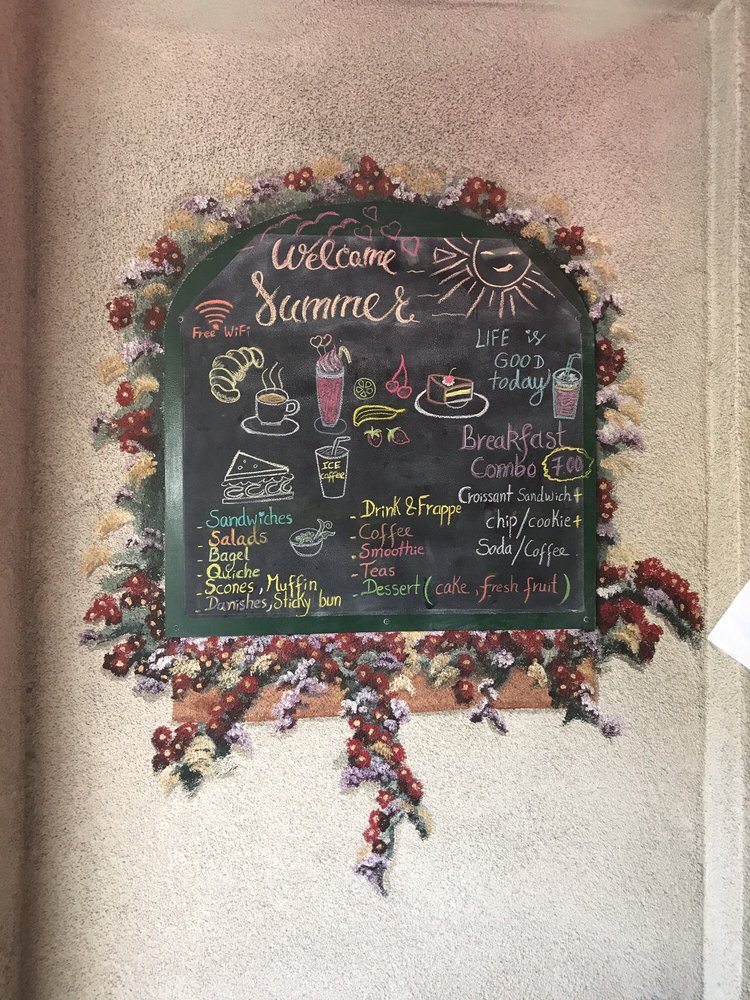 Welcome
Summer
Free WiFi
LIFE is
GOOD
today
ICE
coffee
Breakfast
Combo 7.00
Croissant Sandwich+
chip/cookie+
Soda/Coffee
- Sandwiches
- Salads
- Bagel
- Quiche
- Scones, Muffin
- Danishes, Sticky bun
- Drink & Frappe
- Coffee
- Smoothie
- Teas
- Dessert (cake, fresh fruit)